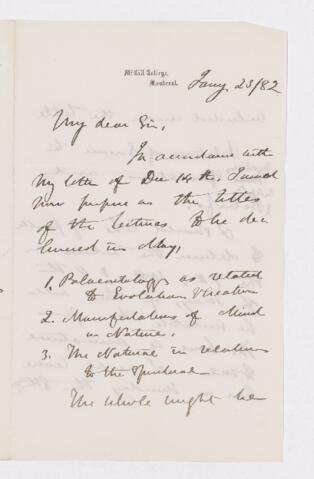 McGill College,
Montreal.
Jany 23/82
My dear Sir,
In accordance with
my letter of Dec 14th, I would
now propose as the titles
of the lectures to be de
livered in May,
1. Palaeontology as related
to Evolution & Creation
2. Manifestations of Mind
in Nature.
3. The Natural in relation
to the Spiritual
The whole might be